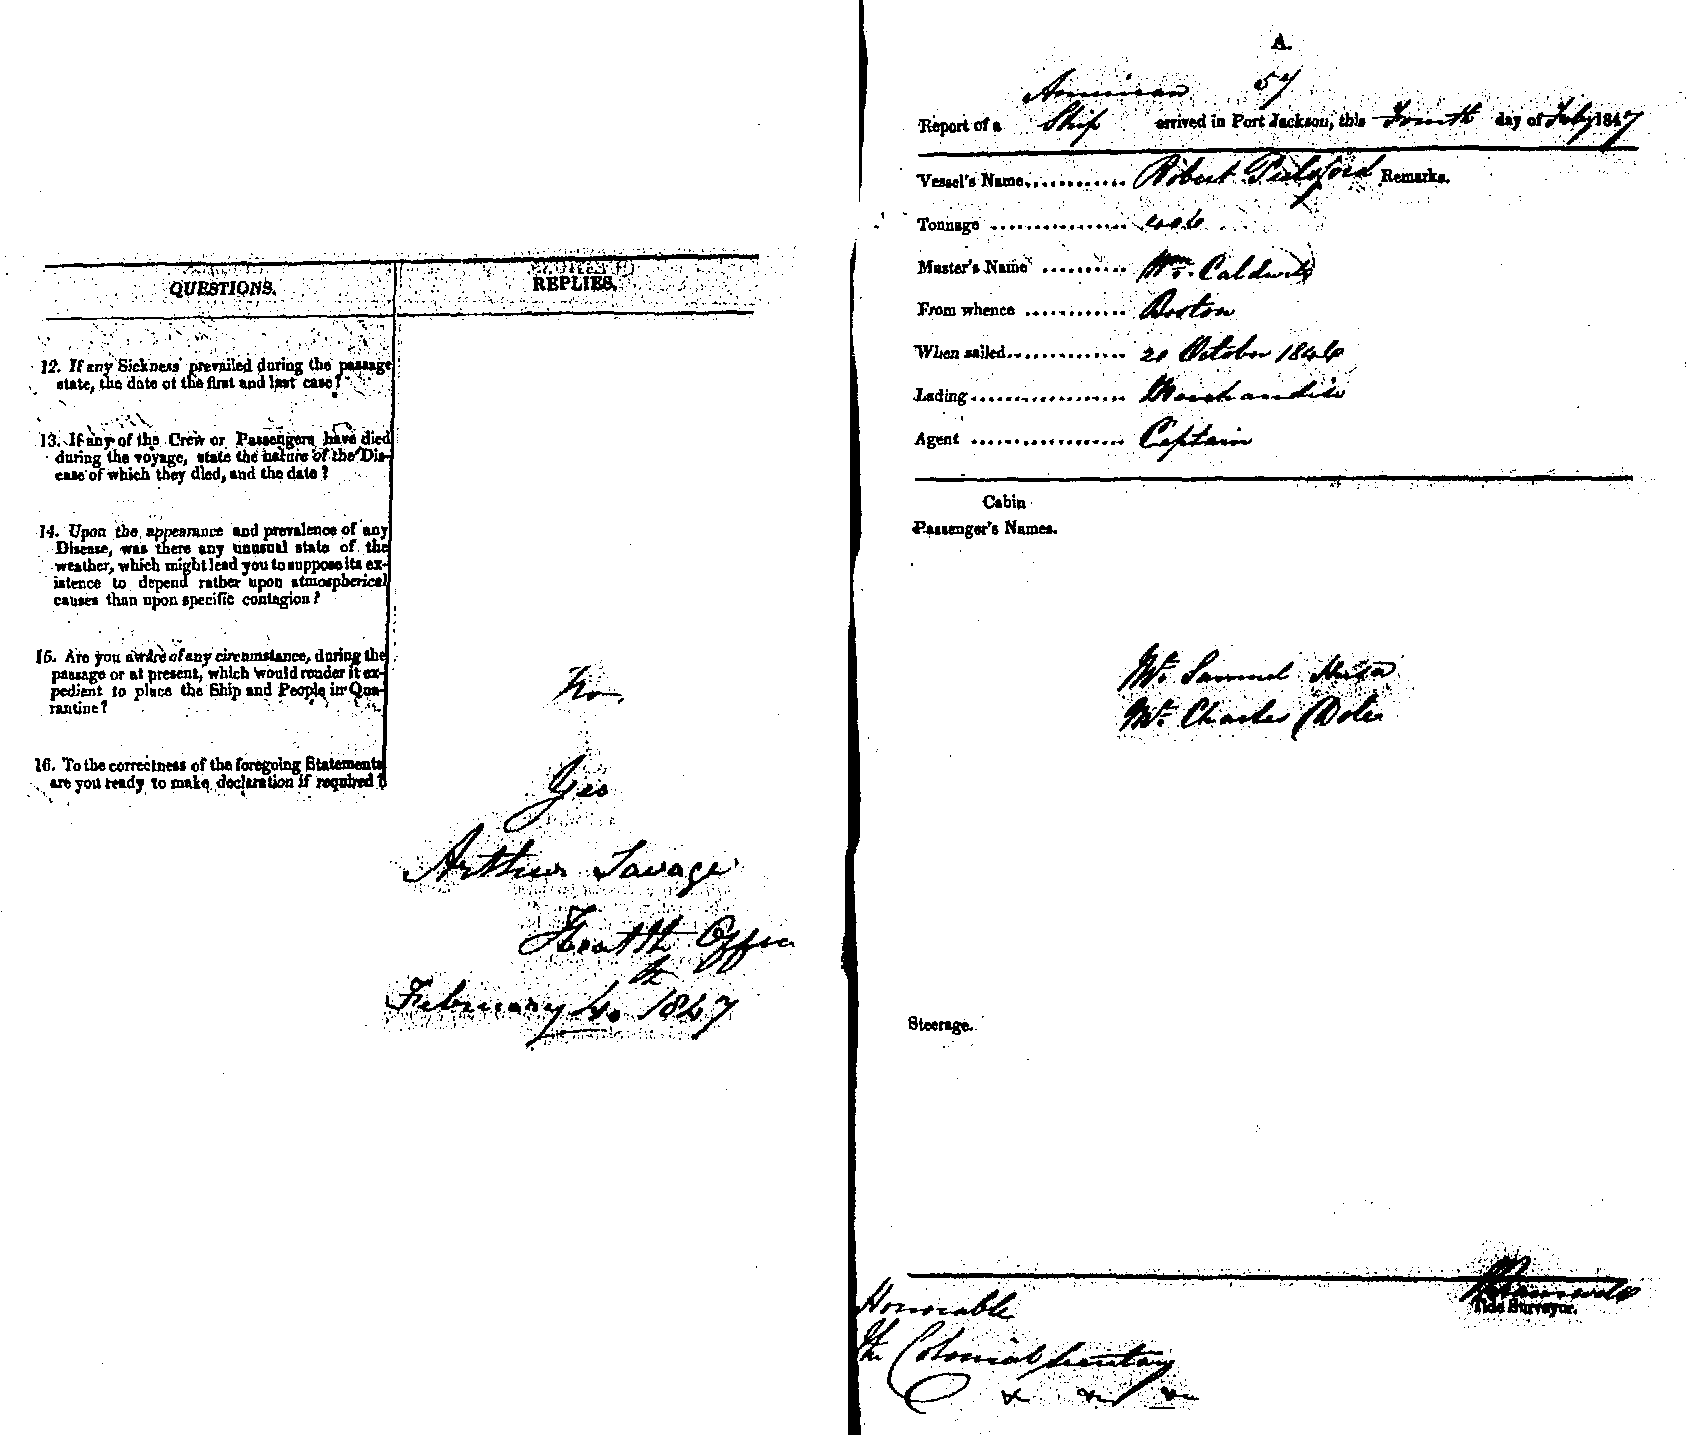 QUESTIONS.
REPLIES.
12. If any Sickness prevailed during the passage
state, the date of the first and last case?
13. If any of the Crew or Passengers have died
during the voyage, state the nature of the Dis-
ease of which they died, and the date?
14. Upon the appearance and prevalence of any
Disease, was there any unusual state of the
weather, which might lead you to suppose its ex-
istence to depend rather upon atmospherical
causes than upon specific contagion?
15. Are you aware of any circumstance, during the
passage or at present, which would render it ex-
pedient to place the Ship and People in Qua-
rantine?
No
16. To the correctness of the foregoing Statements
are you ready to make declaration if required?
Yes
Arthur Savage
Health Officer
February 4th 1847
A.
American 57
Report of a Ship arrived in Port Jackson, this Fourth day of Feby 1847
Vessel's Name Robert Pulsford Remarks.
Tonnage 406
Master's Name Wm. Caldwell
From whence Boston
When sailed 20 October 1846
Lading Merchandise
Agent Captain
Cabin
Passenger's Names.
Mr. Samuel
Mr. Charles Dole
Steerage.
Tide Surveyor.
Honorable
The Colonial Secretary
&c &c &c